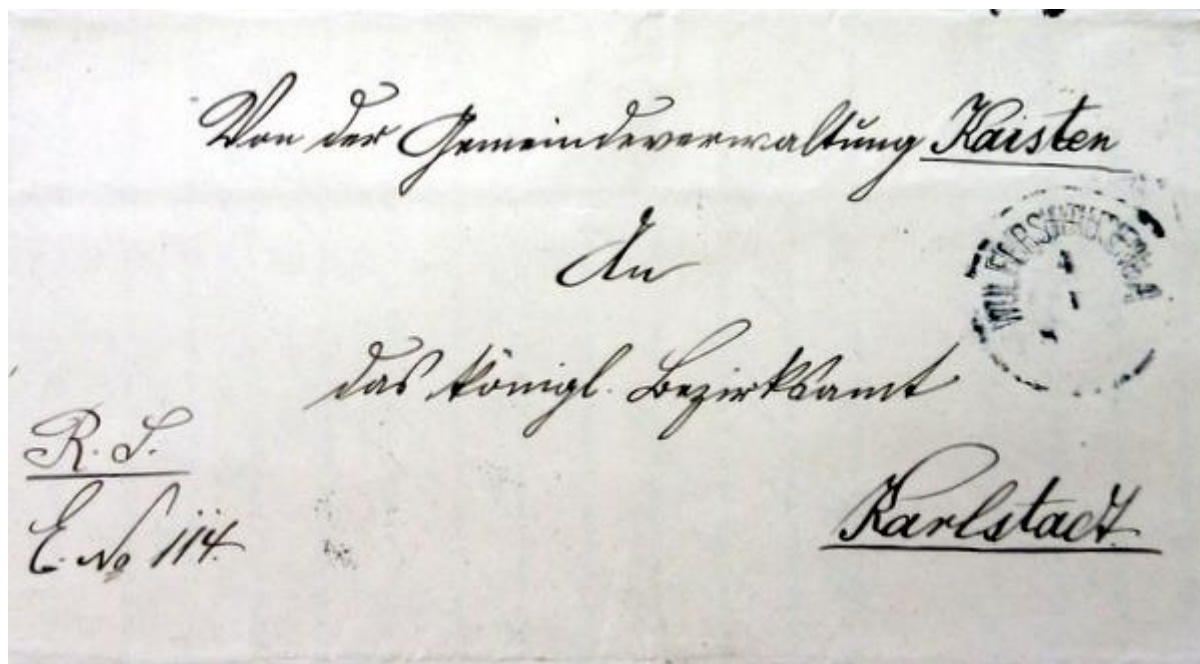 Von der Gemeindeverwaltung Kaisten
An
das königl. Bezirksamt
Karlstadt
R. S.
E. No 114.